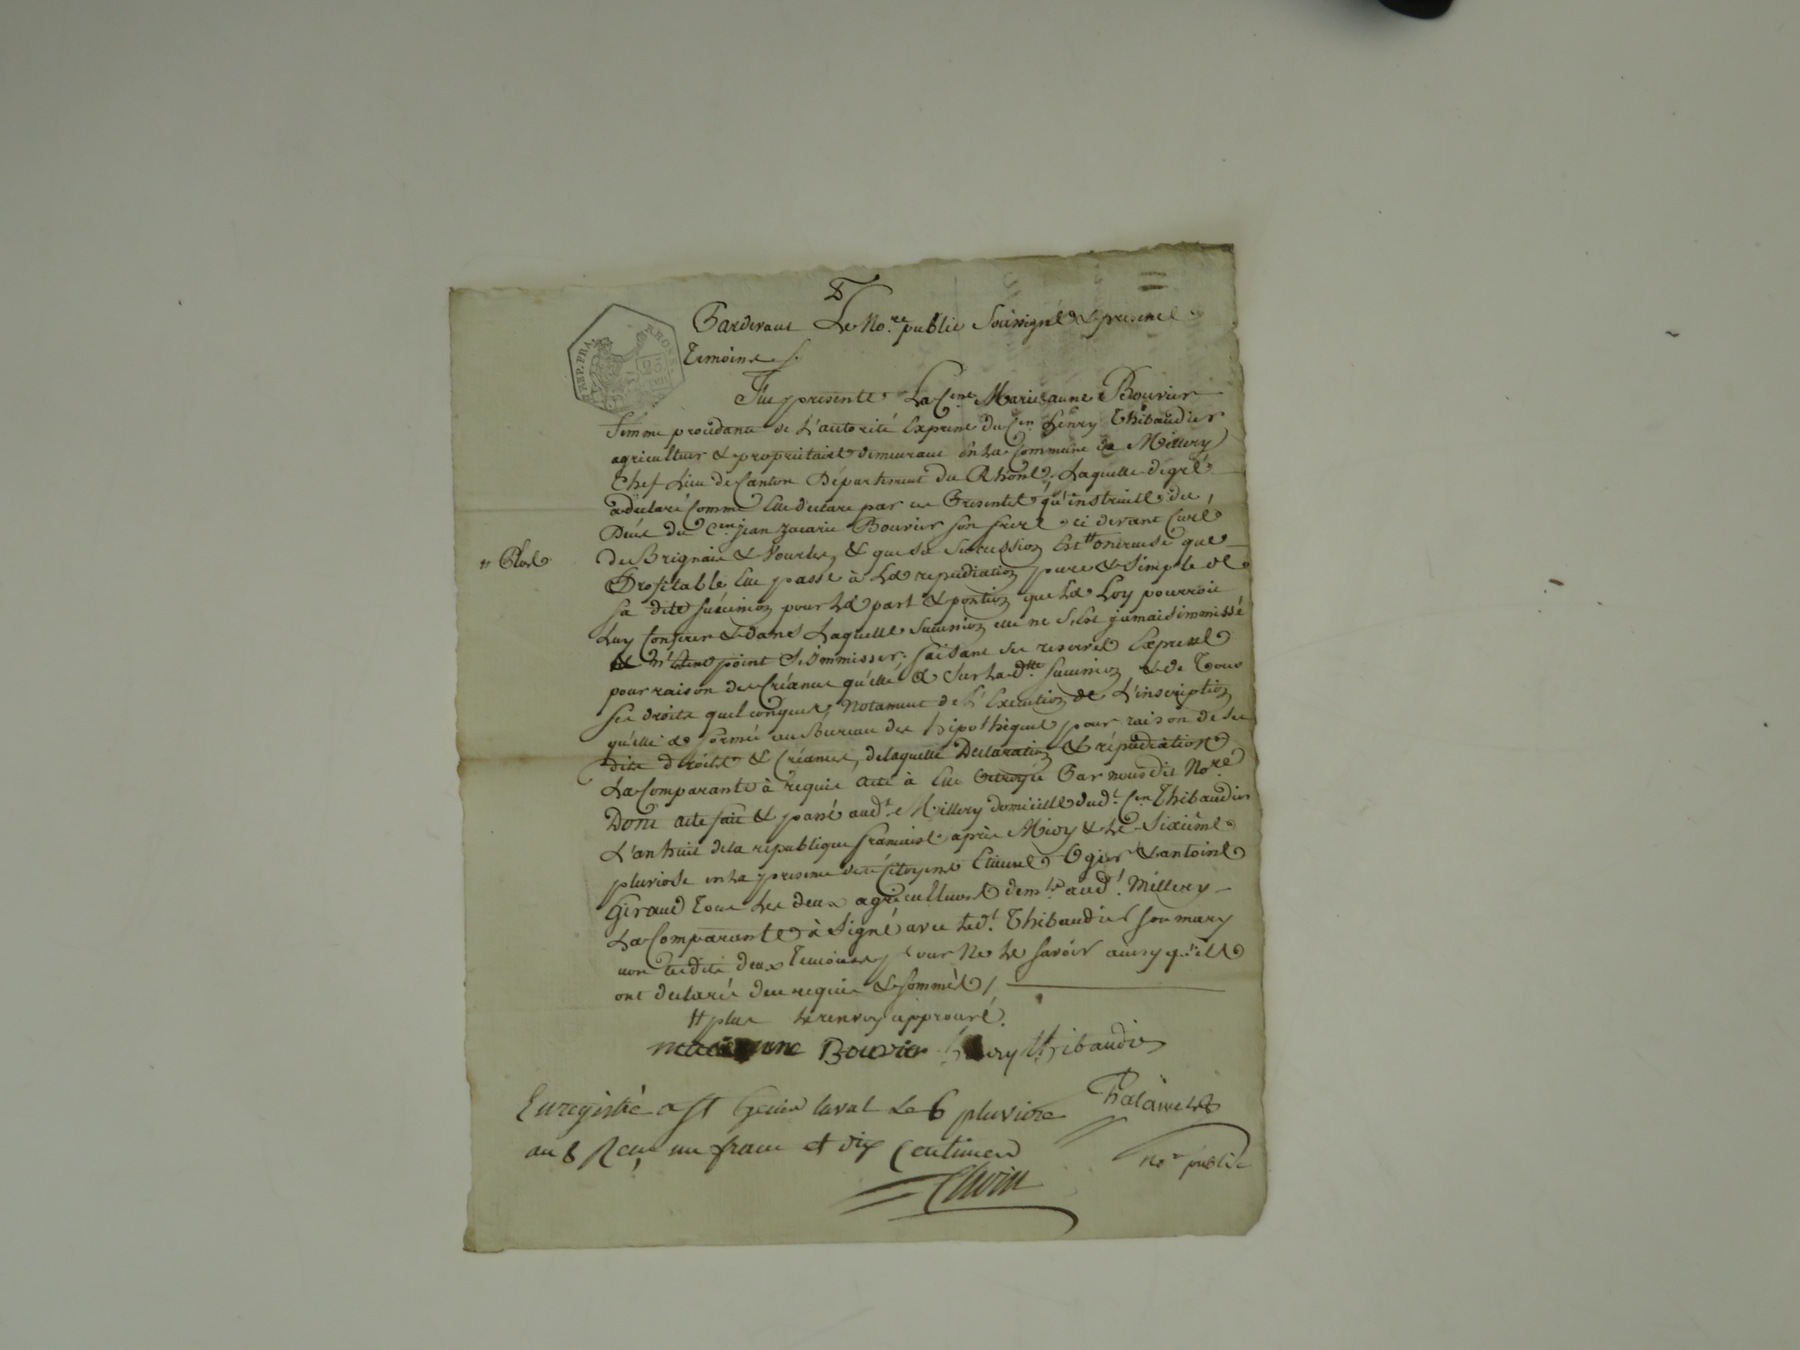 REP. FRA. RHONE
Pardevant Le No.re public Soussigné & presence
Temoins
Fut presente La C.ne Marieanne Bouvier
femme procédante de L'autorité Expresse du C.en henry Thibaudier
agriculteur & proprietaire demeurant en La Commune de Millery
Chef Lieu de Canton Département du Rhone, Laquelle de gré
a déclaré Comme Elle declare par ces Presentes qu'instruite du
Décès du C.en jean Zacarie Bouvier son frere ci devant Curé
de Brignais & Vourles, & que sa Succession Est # onéreuse que
# Plus
Profitable Elle passe à La repudiation pure & Simple de
sa dite succession pour La part & portion que La Loy pourroit
Luy Conferer & dans Laquelle succession elle ne s'est jamais immissé
& n'entend point S'immisser, faisant ses reserves Expresse
pour raison des Créances qu'elle a sur La d.tte succession & de Tous
ses droits quelconques, Notament de L'Exécution de L'inscription
qu'elle a formé au Bureau des hipothèques pour raison de ses
dits droits & Créances, de laquelle Déclaration & répudiation
La Comparante à requis acte à Elle Octroyé Par nous dit No.re
Donc acte fait & passé aud.t Millery domicille dud.t C.en Thibaudier
L'an huit de la republique francaise après Midy & Le Sixième
pluviose en La presence des Citoyens Etienne Ogier & antoine
Giraud Tous Les deux agriculteurs dem.ts aud.t Millery
La Comparante à Signé avec Led.t Thibaudier son mary
non Lesdits deux Temoins pour Ne Le savoir ainsy qu'ils
ont déclaré de ce requis & sommés /
# plus Le renvoy approuvé.
marianne Bouvier henry thibaudier
Enregistré a St Genis laval Le 6 pluviose
an 8 Recu un franc et dix Centimes
no.re public